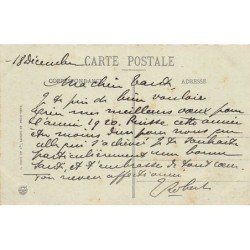 18 Décembre
CARTE POSTALE
CORRESPONDANCE ADRESSE
Ma chère Tante
Je te prie de bien vouloir
mes meilleurs vœux pour
l'année 1920. Puisse cette année
être moins dure pour nous que
celle qui s'achève. Je te souhaite
particulièrement une bonne
santé, et t'embrasse de tout cœur.
Ton neveu affectionné
Robert